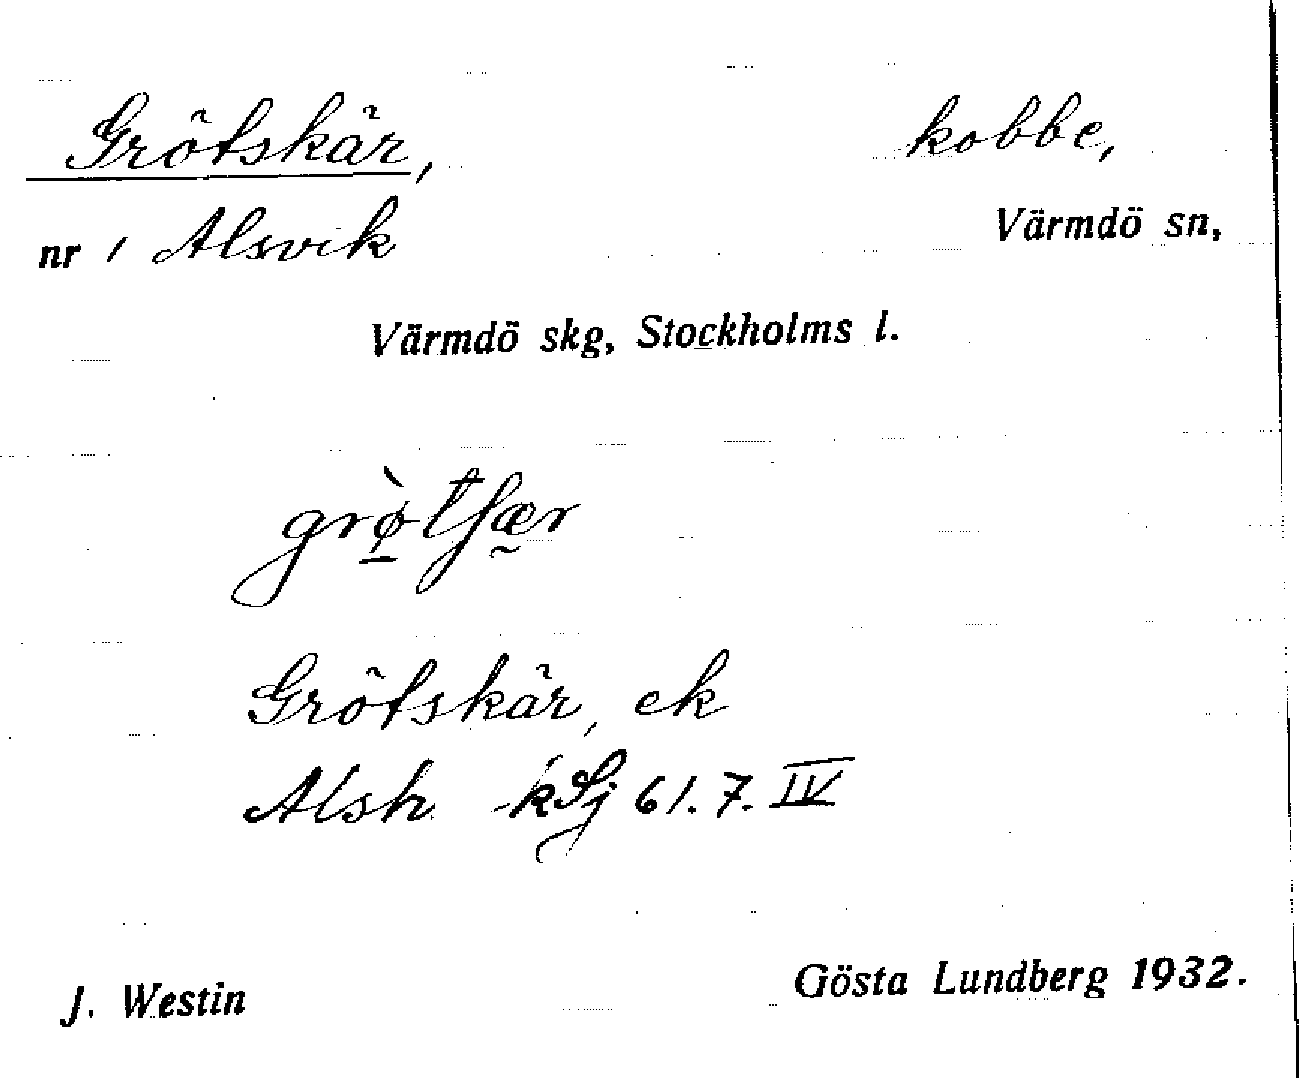 Grötskär, kobbe,
nr 1 Alsvik Värmdö sn,
Värmdö skg, Stockholms l.
grø̀tʃær
Grötskär, ek
Alsh -kSj 61.7.IV
J. Westin Gösta Lundberg 1932.